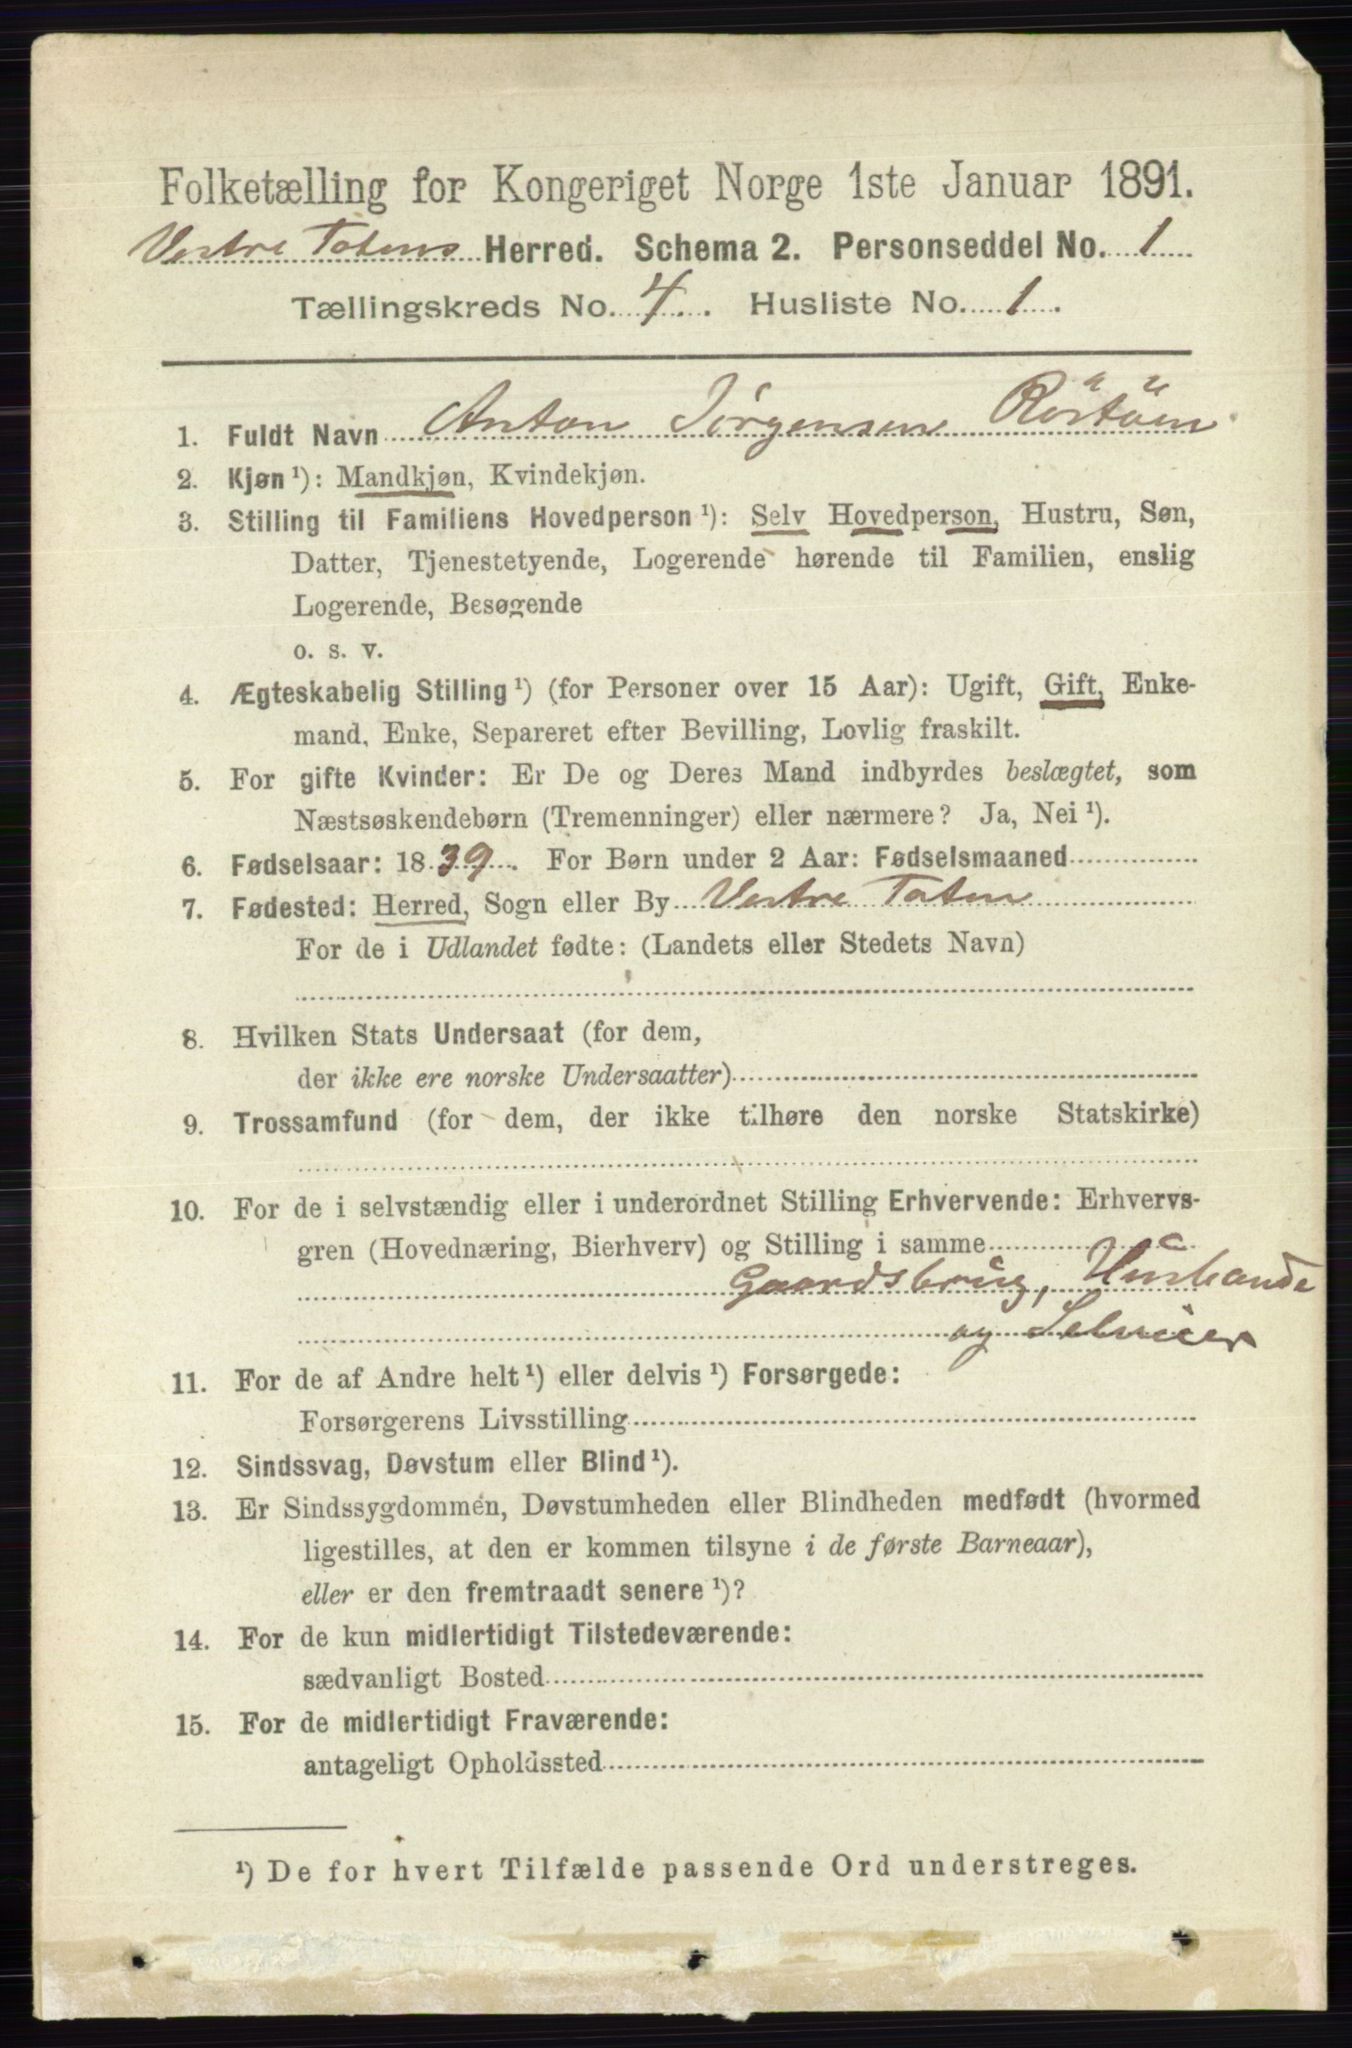 Folketælling for Kongeriget Norge 1ste Januar 1891.
Vestre Totens Herred. Schema 2. Personseddel No. 1
Tællingskreds No. 4. Husliste No. 1.
1. Fuldt Navn Anton Jørgensen
2. Kjøn ¹): Mandkjøn, Kvindekjøn.
3. Stilling til Familiens Hovedperson ¹): Selv Hovedperson, Hustru, Søn,
Datter, Tjenestetyende, Logerende hørende til Familien, enslig
Logerende, Besøgende
o. s. v.
4. Ægteskabelig Stilling ¹) (for Personer over 15 Aar): Ugift, Gift, Enke-
mand, Enke, Separeret efter Bevilling, Lovlig fraskilt.
5. For gifte Kvinder: Er De og Deres Mand indbyrdes beslægtet, som
Næstsøskendebørn (Tremenninger) eller nærmere? Ja, Nei ¹).
6. Fødselsaar: 1839. For Børn under 2 Aar: Fødselsmaaned
7. Fødested: Herred, Sogn eller By Vestre Toten
For de i Udlandet fødte: (Landets eller Stedets Navn)
8. Hvilken Stats Undersaat (for dem,
der ikke ere norske Undersaatter)
9. Trossamfund (for dem, der ikke tilhøre den norske Statskirke)
10. For de i selvstændig eller i underordnet Stilling Erhvervende: Erhvervs-
gren (Hovednæring, Bierhverv) og Stilling i samme
Gaardsbrug,
og Selveier
11. For de af Andre helt ¹) eller delvis ¹) Forsørgede:
Forsørgerens Livsstilling
12. Sindssvag, Døvstum eller Blind ¹).
13. Er Sindssygdommen, Døvstumheden eller Blindheden medfødt (hvormed
ligestilles, at den er kommen tilsyne i de første Barneaar),
eller er den fremtraadt senere ¹)?
14. For de kun midlertidigt Tilstedeværende:
sædvanligt Bosted
15. For de midlertidigt Fraværende:
antageligt Opholdssted
¹) De for hvert Tilfælde passende Ord understreges.